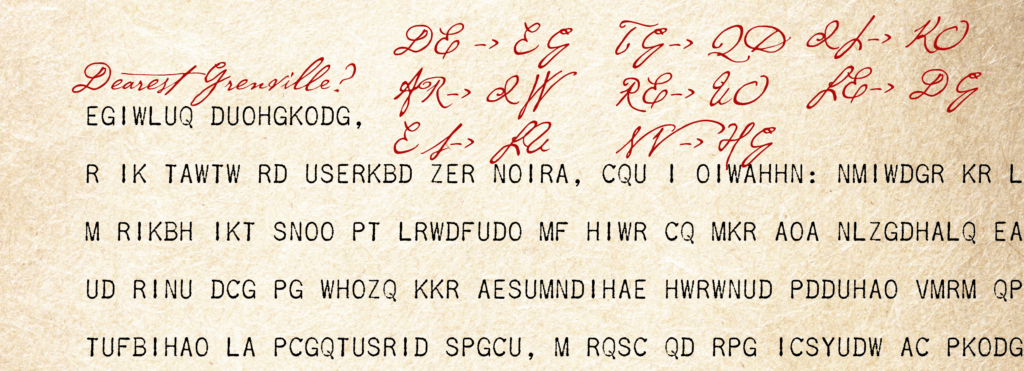 DE -> EG TG -> QD IL -> KO
Dearest Grenville? AR -> IW RE -> UO LE -> DG
EGIWLUQ DUOHGKODG,
ES -> LU NV -> HG
R IK TAWTW RD USERKBD ZER NOIRA, CQU I OIWAHHN: NMIWDGR KR L
M RIKBH IKT SNOO PT LRWDFUDO MF HIWR CQ MKR AOA NLZGDHALQ EA
UD RINU DCG PG WHOZQ KKR AESUMNDIHAE HWRWNUD PDDUHAO VMRM QP
TUFBIHAO LA PCGQTUSRID SPGCU, M RQSC QD RPG ICSYUDW AC PKODG